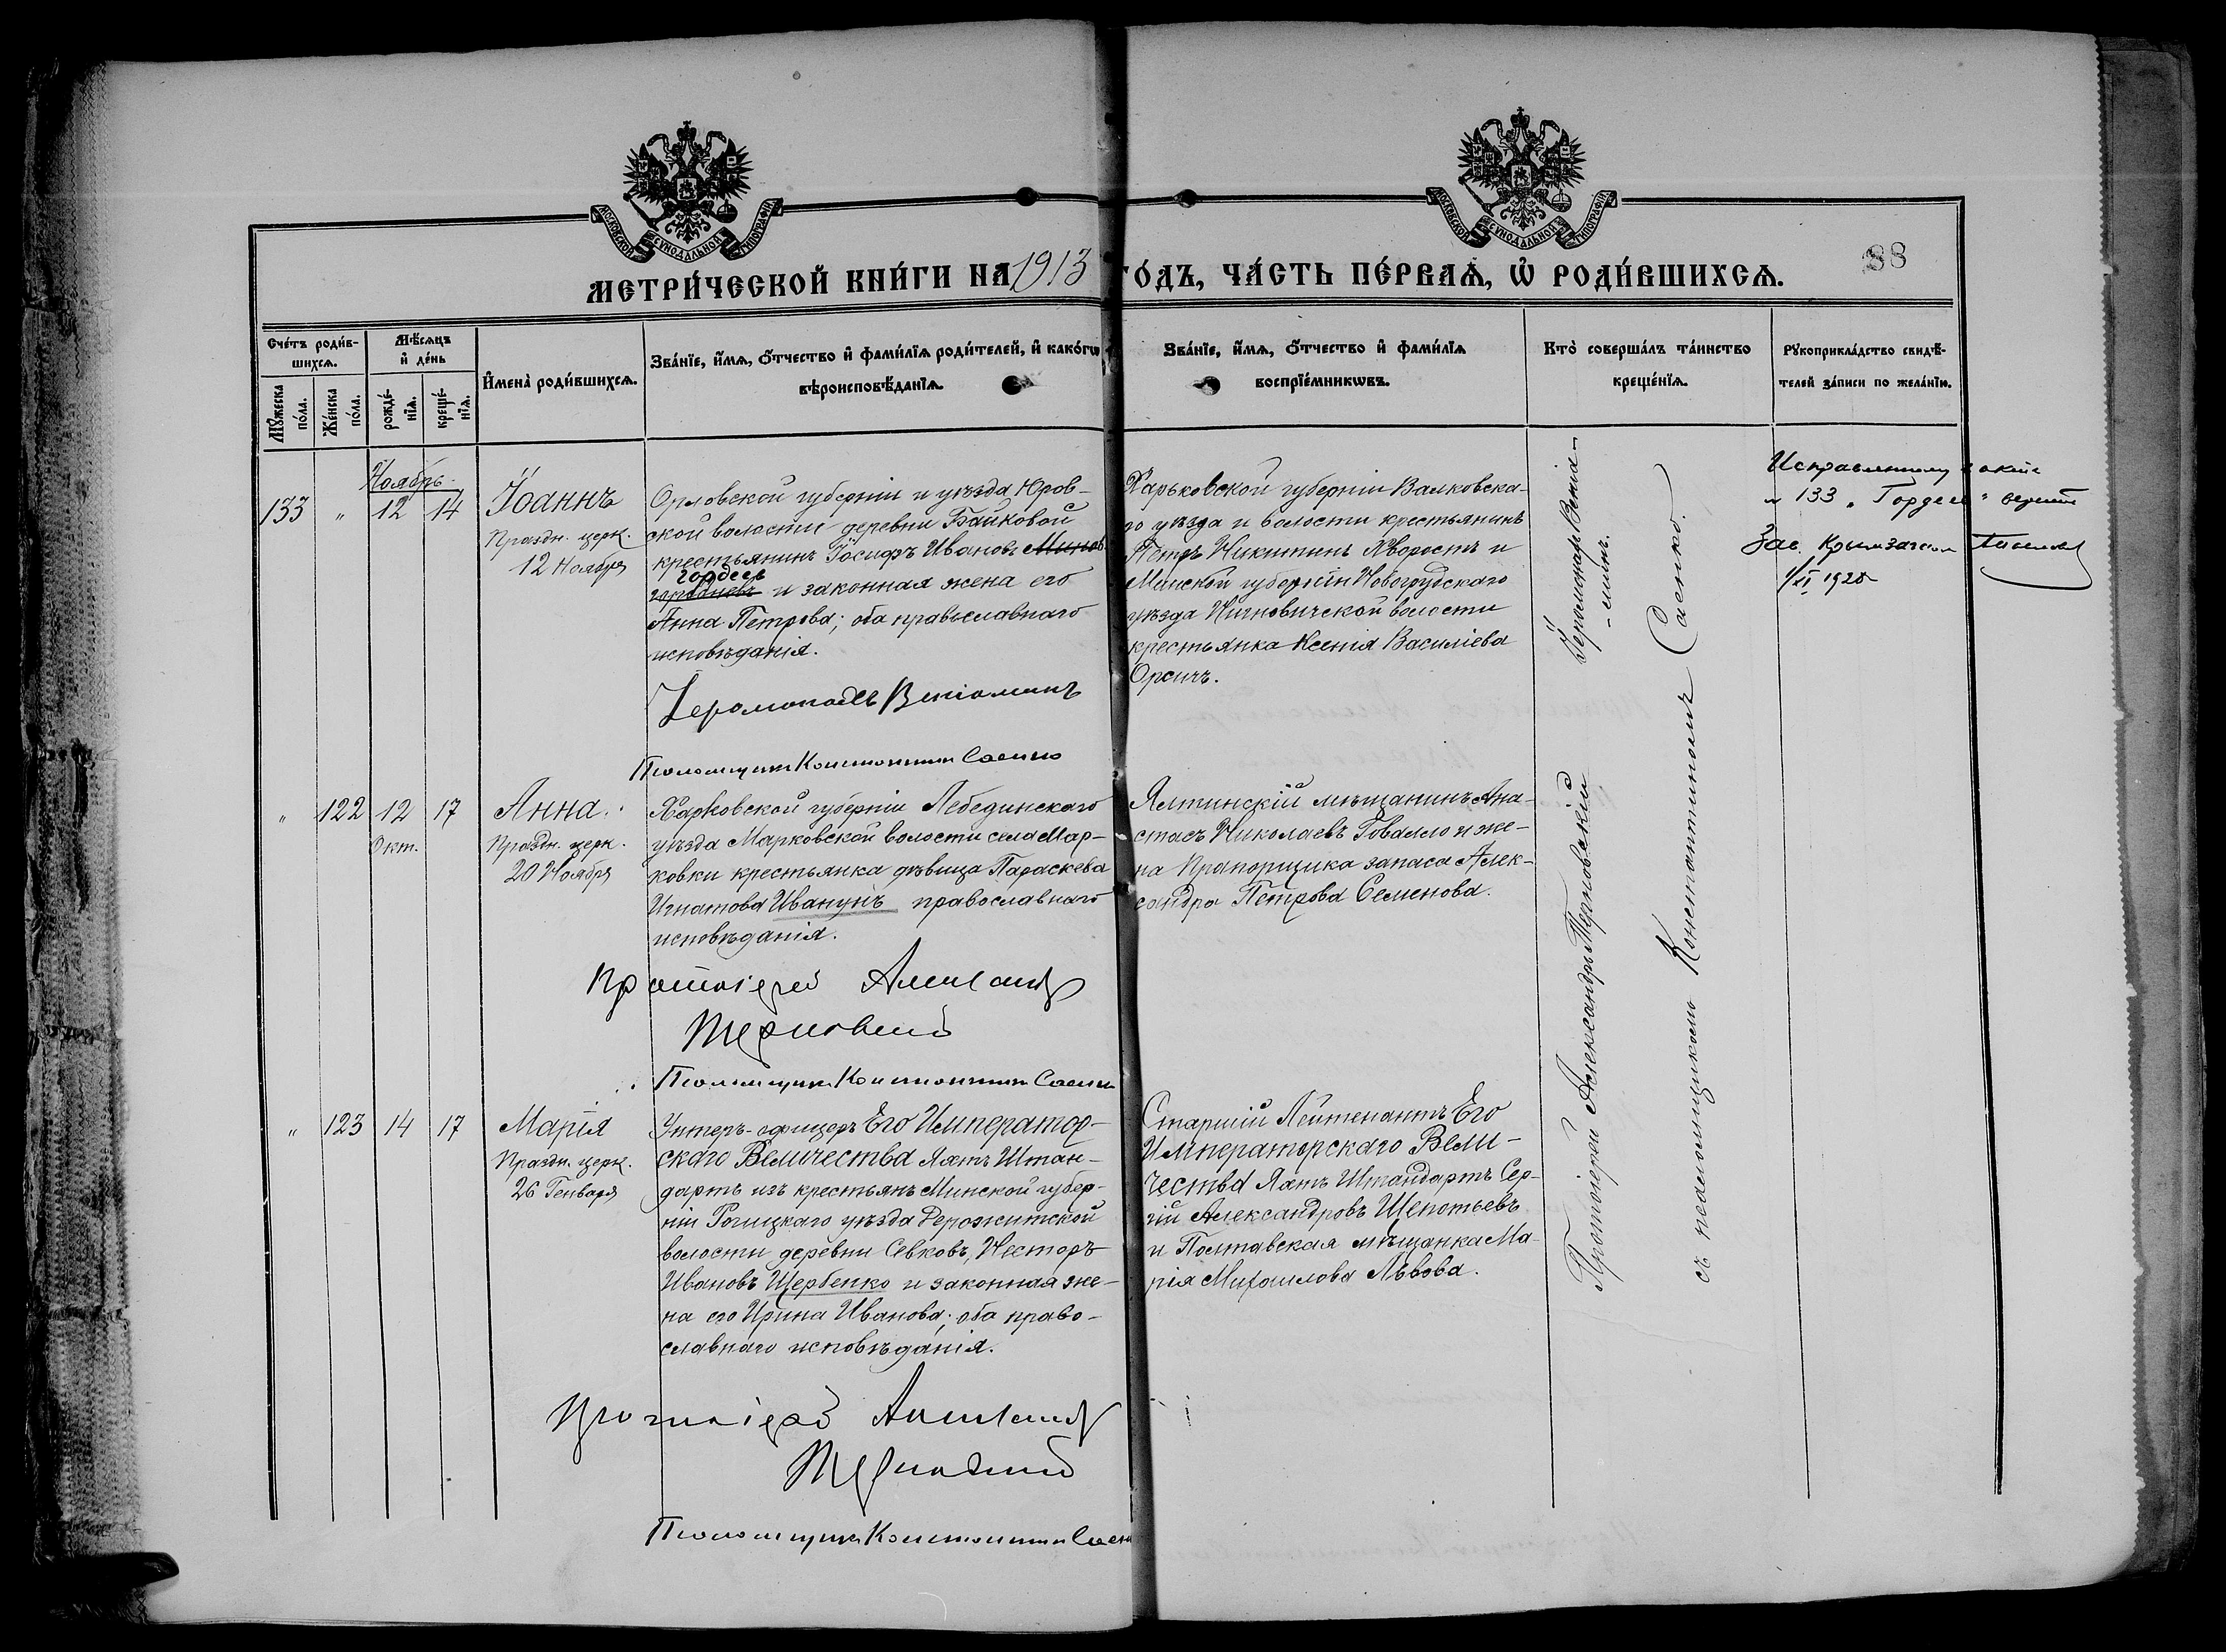 МОСКОВСКОЙ СѴНОДАЛЬНОЙ ТИПОГРАФІИ
МОСКОВСКОЙ СѴНОДАЛЬНОЙ ТИПОГРАФІИ
МЕТРИ́ЧЕСКОЙ КНИ́ГИ НА 1913 ГО́ДЪ, ЧА́СТЬ ПЕ́РВАѦ, Ѡ҆ РОДИ́ВШИХСѦ.
88
Сче́тъ роди́в-
шихсѧ.
Мꙋ́жеска
по́ла.
Же́нска
по́ла.
Мѣ́сѧцъ
и҆ де́нь
рожде́-
нїѧ.
креще́-
нїѧ.
И҆мена̀ роди́вшихсѧ.
Зва́нїе, и҆́мѧ, ѻ҆́тчество и҆ фами́лїѧ роди́телей, и҆ како́гѡ
вѣроисповѣ́данїѧ.
Зва́нїе, и҆́мѧ, ѻ҆́тчество и҆ фами́лїѧ
воспрїе́мникѡвъ.
Кто̀ соверша́лъ та́инство
креще́нїѧ.
Рꙋкоприкла́дство свидѣ́-
телей за́писи по жела́нїю.
Ноябрь.
133 " 12 14
Іоаннъ
Праздн. церк.
12 Ноября
Орловской губерніи и уѣзда Юров-
ской волости деревни Байковой
крестьянинъ Іосифъ Ивановъ Минов
гордеев
и законная жена его
Анна Петрова; оба православнаго
исповѣданія.
Іеромонахъ Веніаминъ
Псаломщикъ Константин Саенко
Харьковской губерніи Валковска-
го уѣзда и волости крестьянинъ
Петръ Никитинъ Хворостъ и
Минской губерніи Новогрудскаго
уѣзда волости
крестьянка Ксенія Василіева
Орсичъ.
Іеромонахъ Веніа-
-минъ.
№ 133 "Гордеев"
Зав.
1/XI 1928
" 122 12 17
Окт.
Анна.
Праздн. церк.
20 Ноября
Харковской губерніи Лебединскаго
уѣзда Марковской волости села Мар-
ковки крестьянка дѣвица Параскева
Игнатова Иванунъ православнаго
исповѣданія.
Протоіерей Александръ
Терновскій
Псаломщикъ Константин Саенко
Ялтинскій мѣщанинъ Ана-
стасъ Николаевъ Говалло и же-
на Прапорщика запаса Алек-
сандра Петрова Семенова.
" 123 14 17
Марія
Праздн. церк.
26 Генваря
Унтеръ-офицеръ Его Император-
скаго Величества Яхтъ Штан-
дартъ изъ крестьянъ Минской губер-
ніи уѣзда
волости деревни Севковъ, Несторъ
Ивановъ Щербенко и законная же-
на его Ирина Иванова; оба право-
славнаго исповѣданія.
Протоіерей Александръ
Терновскій
Псаломщикъ Константин Саен
Старшій Лейтенантъ Его
Императорскаго Вели-
чества Яхтъ Штандартъ Сер-
гій Александровъ Щепотьевъ
и Полтавская мѣщанка Ма-
рія Михаилова Львова.
Протоіерей Александръ Терновскій
съ псаломщикомъ Константиномъ Саенко.